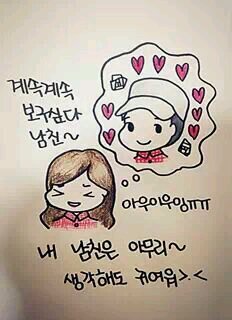 계속계속
보구싶다
남친~
아우이우잉ㅠㅠ
내 남친은 아무리~
생각해도 귀여워>.<